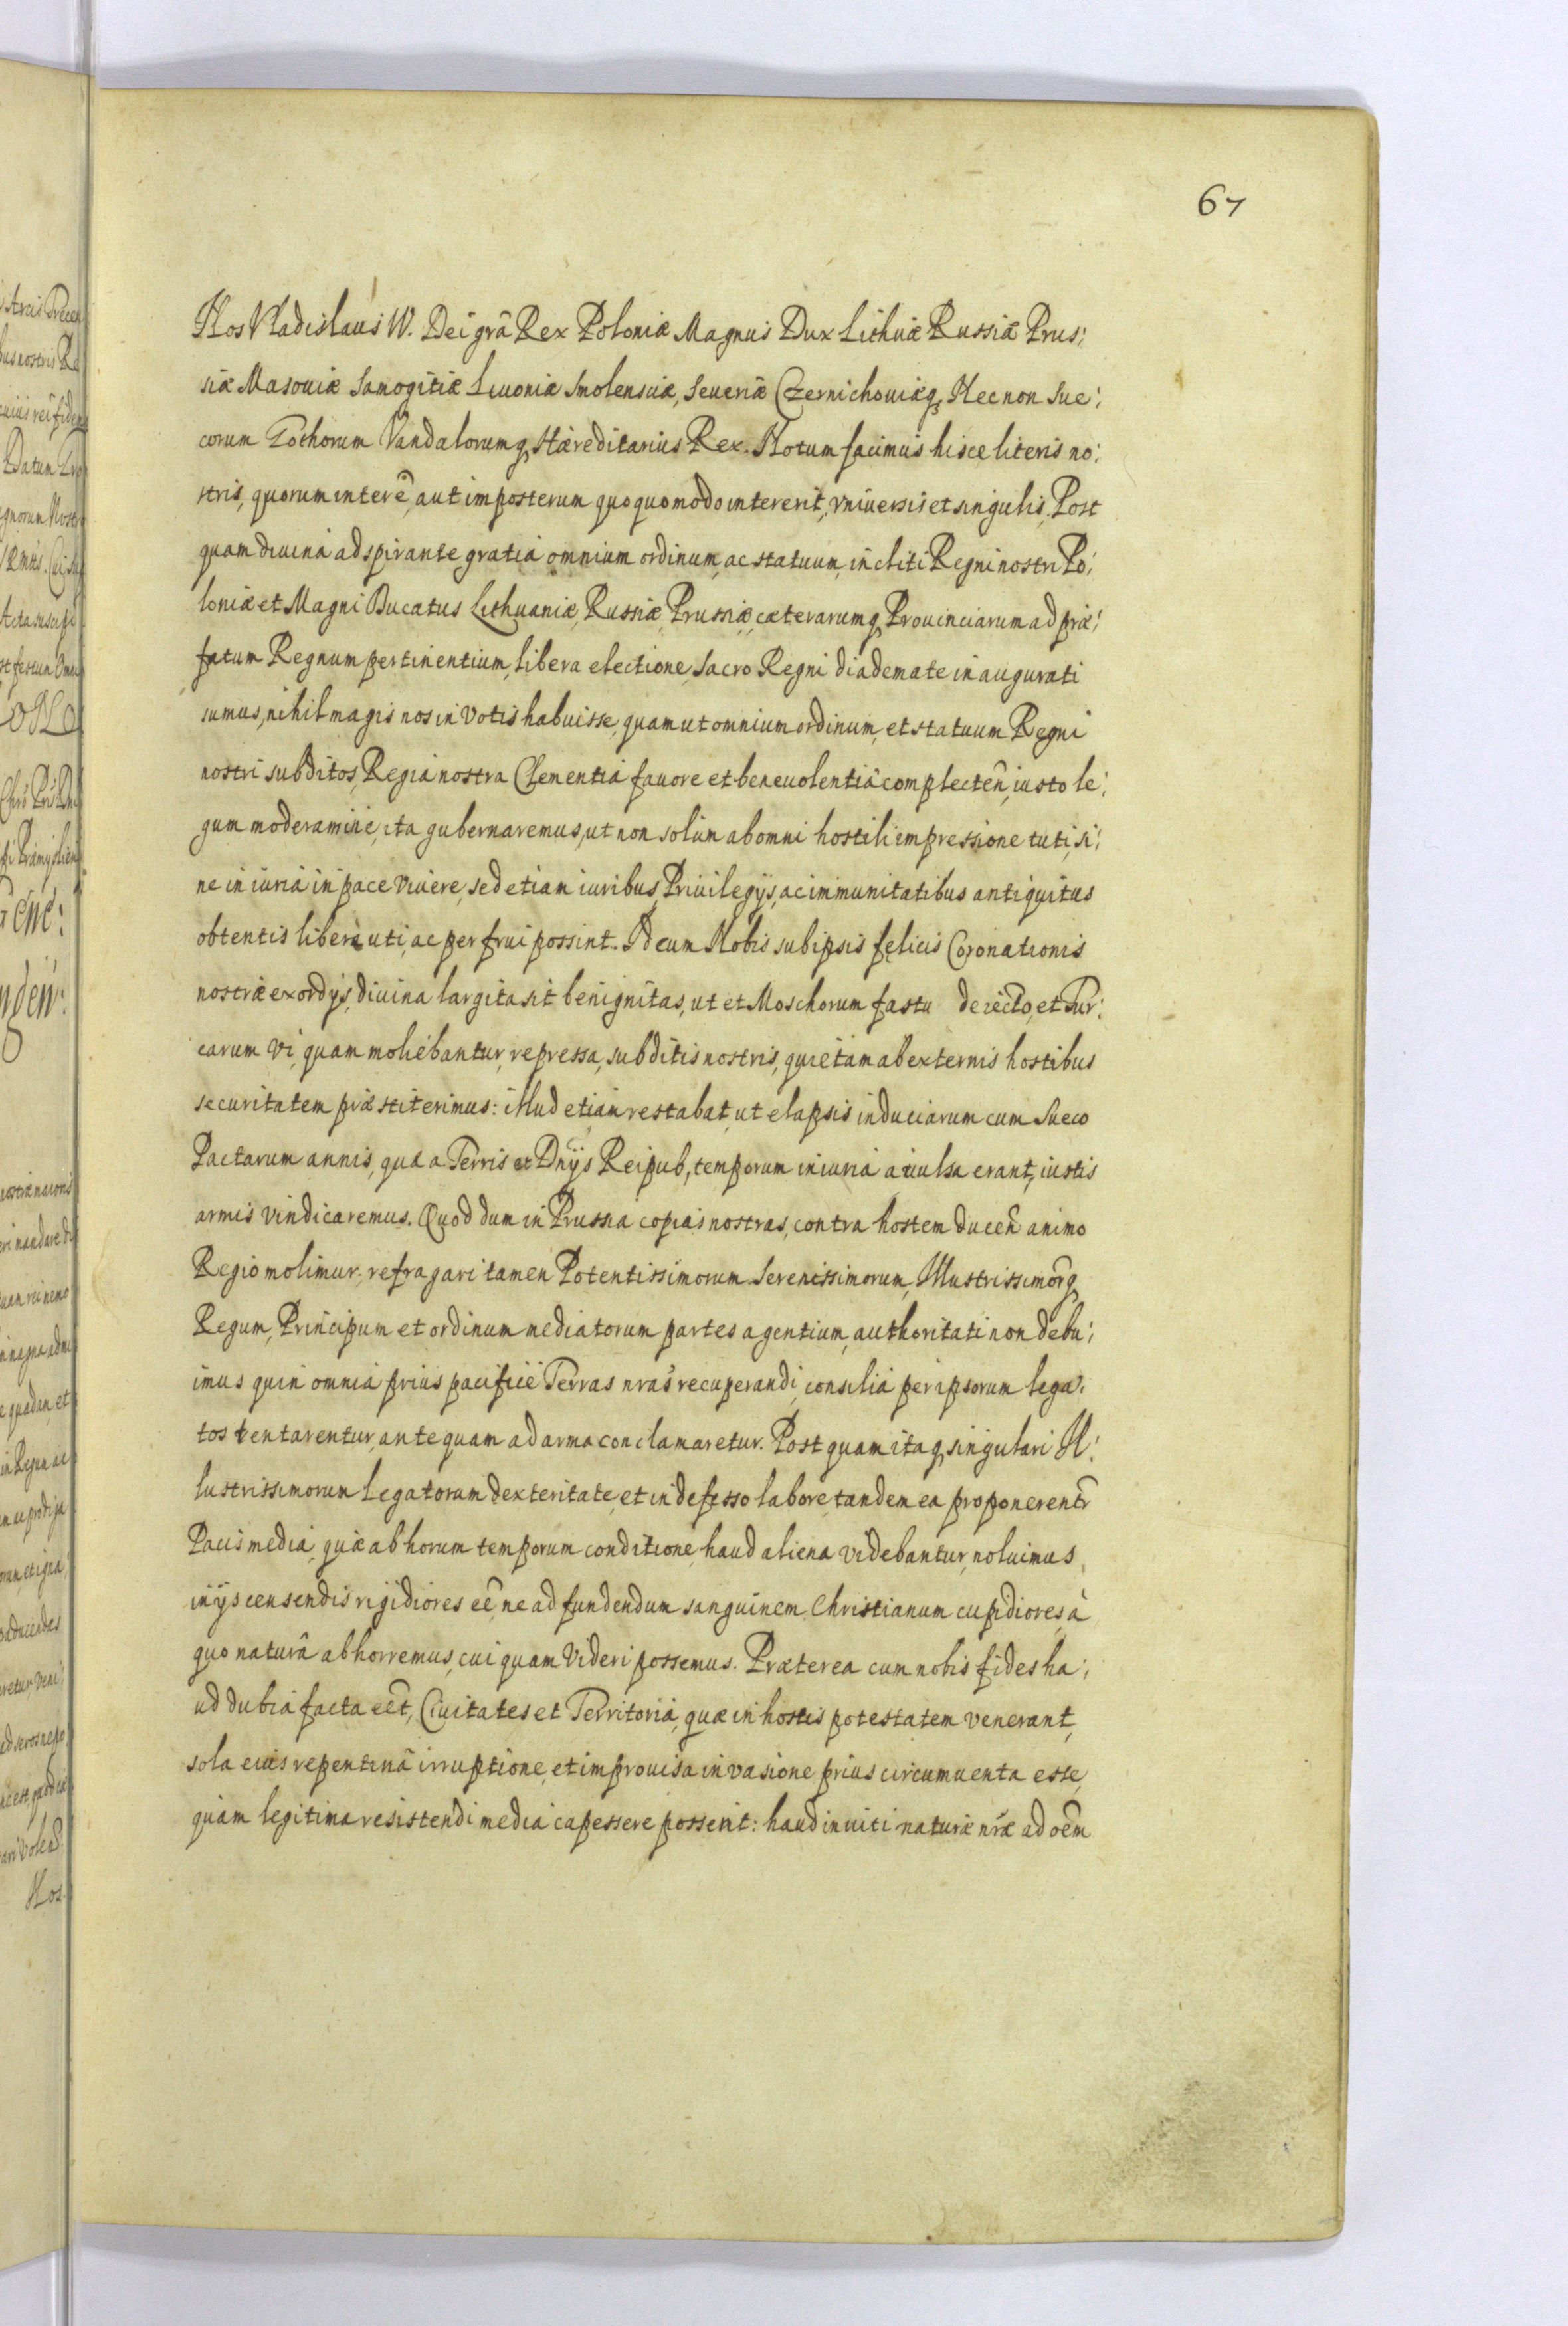 67
Nos Vladislaus IV. Dei grã Rex Poloniæ Magnus Dux Lithuæ Russiæ Prus:
siæ Masouiæ Samogitiæ Liuoniæ Smolensciæ, Seueriæ Czernichouiæq, Nec non Sue:
corum Gothorum Vandalorumq, Hæreditarius Rex. Notum facimus hisce literis no:
stris, quorum interẽ, aut imposterum quoquomodo intererit, vniuersis et singulis, Post
quam diuina adspirante gratiâ omnium ordinum, ac statuum, incliti Regni nostri Po:
loniæ et Magni Ducatus Lithuaniæ, Russiæ, Prussiæ, cæterarumq, Prouinciarum ad præ:
fatum Regnum pertinentium, libera electione, Sacro Regni diademate inaugurati
sumus, nihil magis nos in votis habuisse, quam ut omnium ordinum, et statuum Regni
nostri subditos, Regiâ nostra Clementiâ fauore et beneuolentiâ complecteñ, iusto le:
gum moderamine, ita gubernaremus, ut non solùm ab omni hostili impressione tuti, si:
ne iniuriâ in pace viuere, sed etiam iuribus, Priuilegijs, ac immunitatibus antiquitus
obtentis liberè uti, ac perfrui possint. Id cum Nobis sub ipsis felicis Coronationis
nostræ exordijs, diuina largita sit benignitas, ut et Moschorum fastu deiecto, et Tur:
carum vi, quam moliebantur, repressa, subditis nostris, quietam ab externis hostibus
securitatem præstiterimus: illud etiam restabat, ut elapsis induciarum cum Sueco
Pactarum annis, quæ a Terris et Dnijs Reipub, temporum iniuriâ auulsa erant, iustis
armis vindicaremus. Quod dum in Prussia copias nostras, contra hostem duceñ animo
Regio molimur: refragari tamen Potentissimorum Serenissimorum, Illustrissimorq
Regum, Principum et ordinum mediatorum partes agentium, authoritati non debu:
imus quin omnia prius pacificè Terras nras recuperandi, consilia per ipsorum lega:
tos tentarentur, ante quam ad arma conclamaretur. Post quam itaq, singulari Il:
lustrissimorum Legatorum dexteritate, et indefesso labore, tandem ea proponerentr
Pacis media, quæ ab horum temporum conditione, haud aliena videbantur, noluimus
in ijs censendis rigidiores eẽ, ne ad fundendum sanguinem Christianum cupidiores, à
quo naturâ abhorremus, cuiquam videri possemus. Præterea cum nobis fides ha:
ud dubia facta eẽt, Ciuitates et Territoria, quæ in hostis potestatem venerant,
sola eius repentinâ irruptione, et improuisa inuasione prius circumuenta esse,
quàm legitima resistendi media capessere possent: haud inuiti naturæ nræ ad oẽm